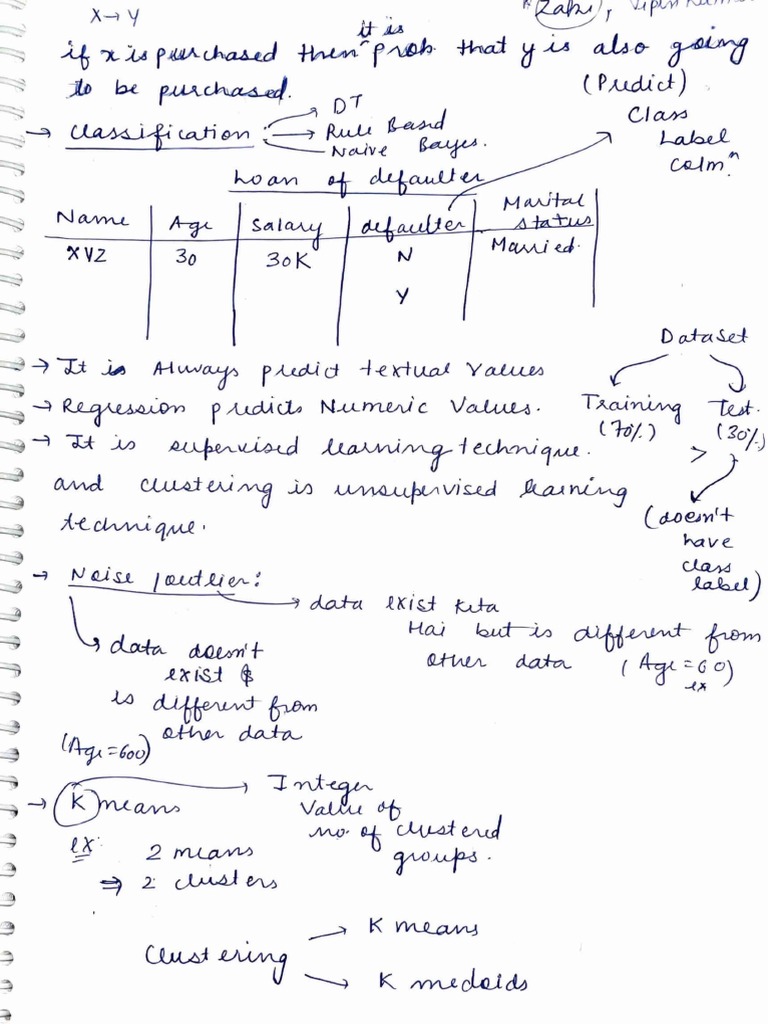 X → Y
"Zaki,
it is
if x is purchased then ^ prob that y is also going
to be purchased.
(Predict)
Class
Label
Colmⁿ.
→ Classification : → DT
→ Rule Based
Naive Bayes.
Loan of defaulter
Name | Age | Salary | defaulter | Marital status
XYZ | 30 | 30K | N | Married.
Y
→ It is Always predict textual values
→ Regression predicts Numeric Values.
→ It is supervised learning technique.
and clustering is unsupervised learning
technique.
Dataset
Training Test.
(70%) > (30%)
(doesn't
have
class
label)
→ Noise / outlier :
→ data exist krta
Hai but is different from
other data (Age = 60)
ex
data doesn't
exist &
is different from
other data
(Age = 600)
→ K means → Integer
Value of
no. of clustered
groups.
ex: 2 means
⇒ 2 clusters
Clustering → K means
→ K medoids